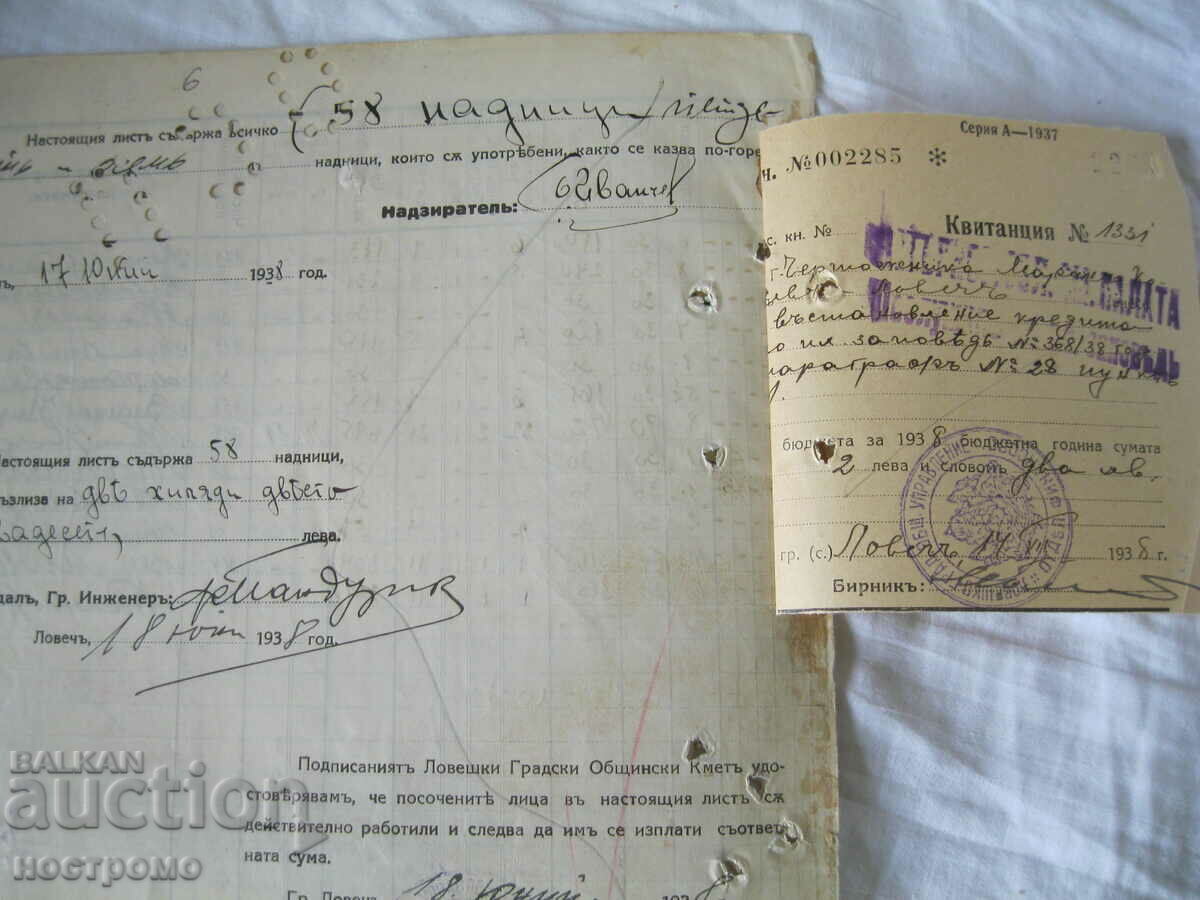 6
Настоящия листъ съдържа всичко 58 надници
надници, които сѫ употрѣбени, както се казва по-горе
Надзиратель: Иванчев
17 Юний 1938 год.
Настоящия листъ съдържа 58 надници,
възлиза на двѣ хиляди двѣста
лева.
Гр. Инженеръ:
Ловечъ, 18 юни 1938 год.
Подписаниятъ Ловешки Градски Общински Кметъ удо-
стовѣрявамъ, че посоченитѣ лица въ настоящия листъ сѫ
действително работили и следва да имъ се изплати съответ-
ната сума.
Гр. Ловечъ 18. Юний 1938
Серия А—1937
ч. № 002285 *
Квитанция № 1331
с. кн. №
Ловечъ
кредита
их заповѣдь № 368/38 год.
параграфъ № 28 пунктъ
бюджета за 1938 бюджетна година сумата
2 лева и словомъ два лв.
гр. (с.) Ловечъ, 17 1938 г.
Бирникъ:
BALKAN
auction
ностромо